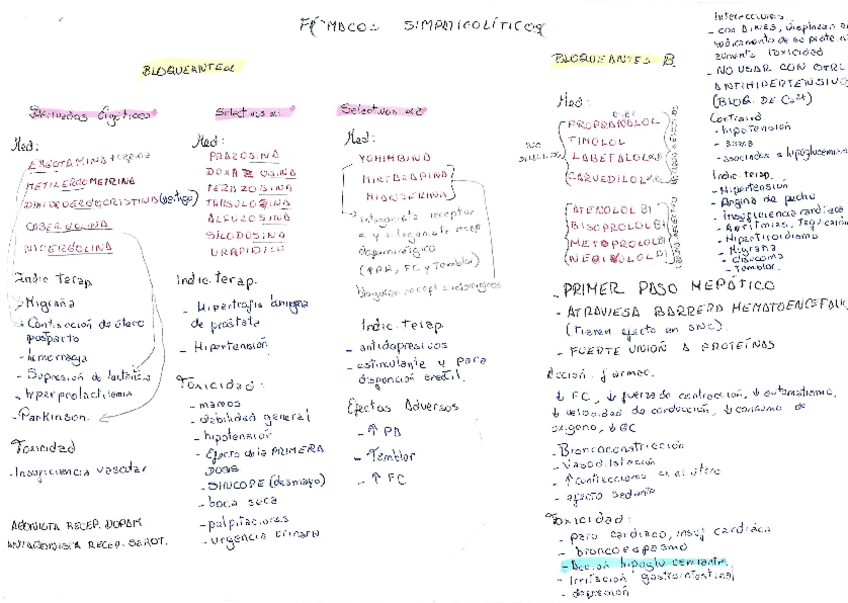 FÁRMACOS SIMPATICOLÍTICOS
BLOQUEANTES α
Derivados Ergóticos
Med:
ERGOTAMINA
METILERGOMETRINA
DIHIDROERGOCRISTINA (vertigo)
CABERGOLINA
NICERGOLINA
Indic Terap
- Migraña
- Contracción de útero
postparto
- hemorragia
- Supresión de lactancia
- hiperprolactinemia
- Parkinson.
Toxicidad
- Insuficiencia vascular
AGONISTA RECEP. DOPAM
ANTAGONISTA RECEP. SEROT.
Selectivos α1
Med:
PRAZOSINA
DOXAZOSINA
TERAZOSINA
TAMSULOSINA
ALFUZOSINA
SILODOSINA
URAPIDILO
Indic. Terap.
- Hipertrofia benigna
de próstata
- Hipertensión
Toxicidad:
- mareos
- debilidad general
- hipotensión
- Efecto de la PRIMERA
DOSIS
- SINCOPE (desmayo)
- boca seca
- palpitaciones
- urgencia urinaria
Selectivos α2
Med:
YOHIMBINA
MIRTAZAPINA
MIANSERINA
antagonista receptor
α y antagonista recep
dopaminérgico
(↑PA, FC y Temblor)
bloquean recept
Indic. Terap
- antidepresivos
- estimulante y para
disfunción eréctil.
Efectos Adversos
- ↑ PA
- Temblor
- ↑ FC
BLOQUEANTES B
Med:
NO SELECTIVOS
PROPRANOLOL
TIMOLOL
LABETALOL
CARVEDILOL
ATENOLOL B1
BISOPROLOL B1
METOPROLOL B1
NEBIVOLOL B1
- PRIMER PASO HEPÁTICO
- ATRAVIESA BARRERA HEMATOENCEFAL
(Tienen efecto en SNC).
- FUERTE UNIÓN A PROTEÍNAS
Acción farmac.
↓ FC, ↓ fuerza de contracción, ↓ automatismo,
↓ velocidad de conducción, ↓ consumo de
oxígeno, ↓ GC
- Broncoconstricción
- Vasodilatación
- ↑ contracciones en el útero
- efecto sedante
Toxicidad:
- paro cardíaco, insuf cardíaca
- broncoespasmo
- Acción hipoglucemiante
- Irritación gastrointestinal
- depresión
Interacciones
- con AINES, desplazan
medicamento de su prote
aumenta toxicidad
- NO USAR CON OTRO
ANTIHIPERTENSIVO
(BLOQ. DE Ca2+)
Contraind
- hipotensión
- asma
- asociados a hipoglucemia
Indic. terap.
- Hipertensión
- Angina de pecho
- Insuficiencia cardíaca
- Arritmias, taquicardia
- Hipertiroidismo
- Migraña
- Glaucoma
- Temblor.